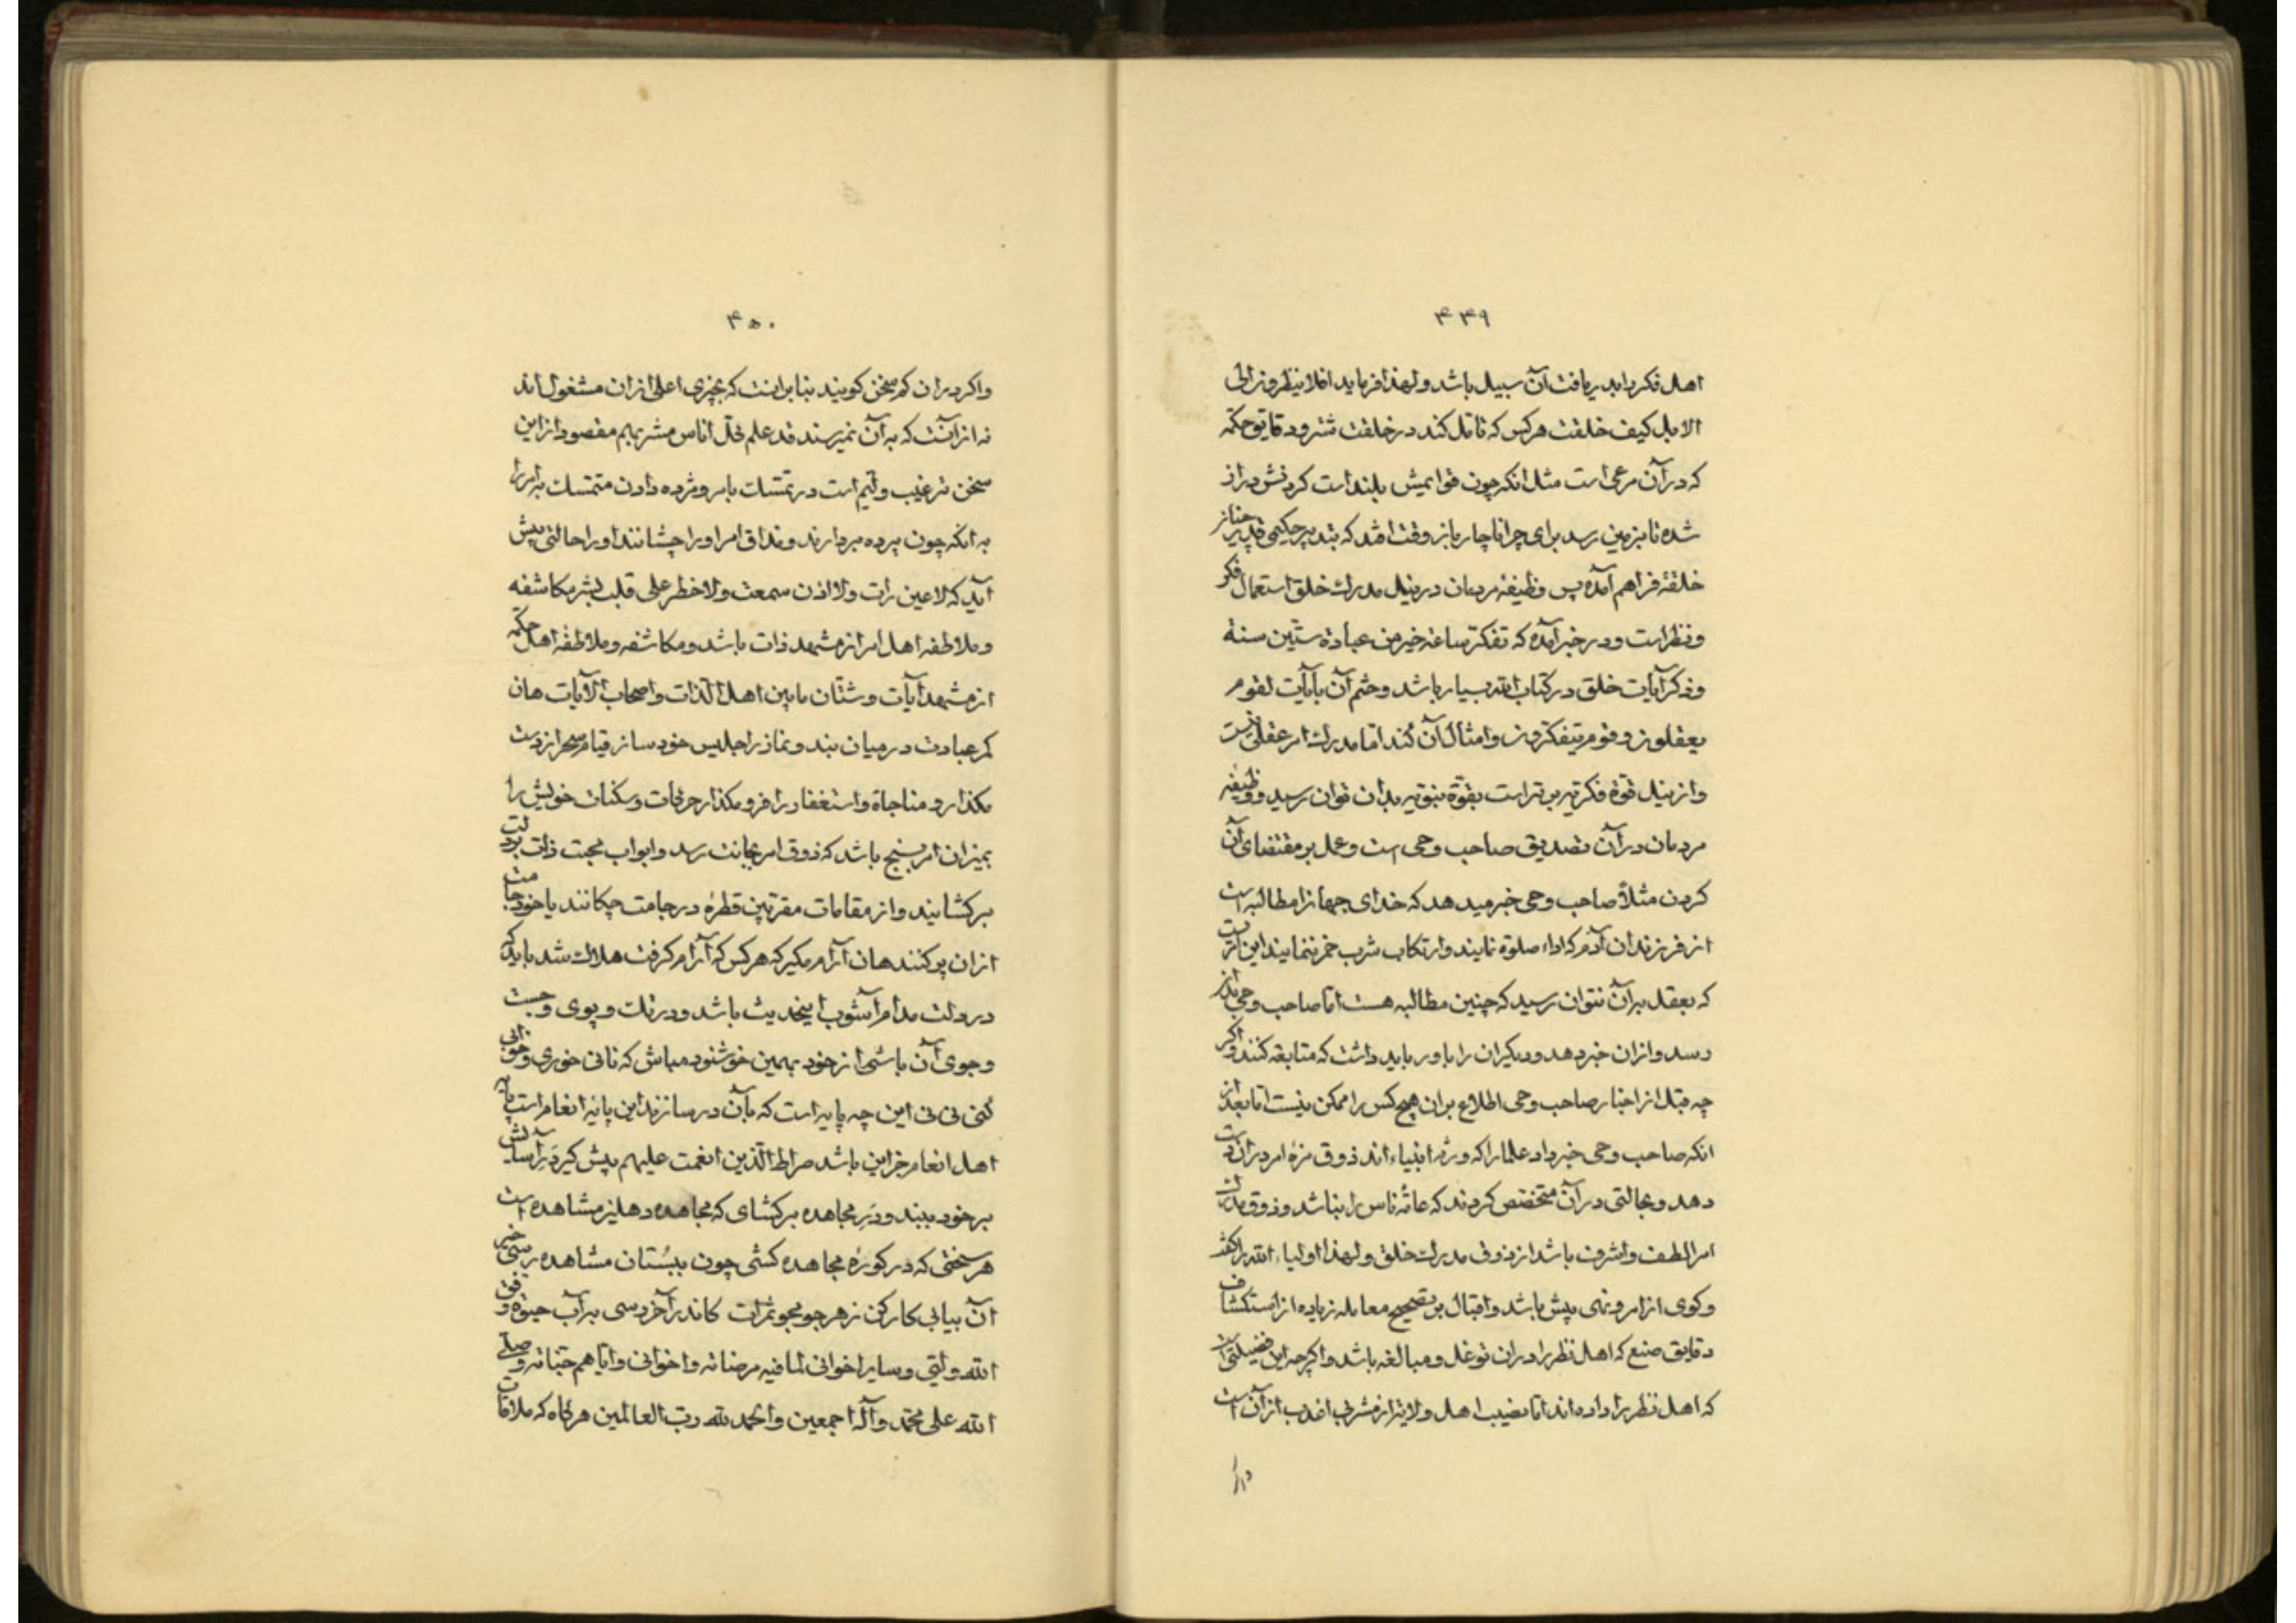 ۴۴۹
اهل فکر باید دریافت آن سبیل باشد ولهذا فرماید افلا ینظرون الی
الابل کیف خلقت هر کس که تامل کند در خلقت شتر و دقایق حکمة
که در آن مرعی است مثل انکه چون قوایمش بلند است کردنش دراز
شده تا بزمین رسد برای چرا ناچار باز وقت افتد که بتدبیر حکیمی قدیر چنان
خلقة فراهم آمده پس وظیفهٔ مردمان در نیل مدرک خلق استعمال فکر
و نظر است و در خبر آمده که تفکر ساعة خیر من عبادة ستین سنة
و ذکر آیات خلق در کتاب الله بسیار باشد و ختم آن بآیات لقوم
یعقلون و قوم یتفکرون و امثال آن کند اما مدرک امر عقلی نیست
و از نیل قوة فکریه برتر است بقوة نبویه بدان توان رسید و وظیفه
مردمان در آن تصدیق صاحب وحی است و عمل بر مقتضای آن
کردن مثلاً صاحب وحی خبر میدهد که خدای جهانرا مطالبه است
از فرزندان آدم که اداء صلوة نمایند و ارتکاب شرب خمر ننمایند این امریست
که بعقل برآن نتوان رسید که چنین مطالبه هست اما صاحب وحی بدان
رسد و ازان خبر دهد و دیکران را باور باید داشت که متابعه کنند و اکر
چه قبل از اخبار صاحب وحی اطلاع بران هیچ کس را ممکن نیست اما بعد از
انکه صاحب وحی خبر داد علما را که ورثهٔ انبیاء اند ذوق مزهٔ امر دران دست
دهد و بحالتی در آن متخصص کردند که عامهٔ ناس را نباشد و ذوق مدرک
امر الطف و اشرف باشد از ذوق مدرک خلق و لهذا اولیاء الله را کفت
و کوی از امر و نهی پیش باشد و اقبال بر تصحیح معامله زیاده از استکشاف
دقایق صنع که اهل نظر را دران توغل و مبالغه باشد و اکرچه این فضیلتی است
که اهل نظر را داده اند اما نصیب اهل ولایة از مشربی اعذب از آن است
و اکر
۴۵۰
و اکر دران کم سخن کویند بنابرانست که بچیزی اعلی ازان مشغول اند
نه از آنست که به آن نمیرسند قد علم کل اناس مشربهم مقصود از این
سخن ترغیب است در تمسک بامر و مژده دادن متمسک بامر را
به انکه چون پرده بردارند و مذاق امر او را چشانند او را حالتی پیش
آید که لا عین رات ولا اذن سمعت ولا خطر علی قلب بشر مکاشفه
و ملاطفه اهل امر از مشهد ذات باشد و مکاشفه و ملاطفهٔ اهل حکمة
از مشهد آیات و شتّان ما بین اهل الذات و اصحاب الآیات هان
کمر عبادت در میان بند و نماز را جلیس خود ساز قیام سحر از دست
مکذار و مناجاة و استغفار را فرو مکذار حرکات و سکنات خویش را
بمیزان امر بسنج باشد که ذوق امر بجانت رسد و ابواب محبت ذات بر دلت
برکشایند و از مقامات مقربین قطرهٔ در جامت چکانند یا خود جامت
ازان پر کنند هان آرام مکیر که هر کس که آرام کرفت هلاک شد باید که
در دلت مدام آشوب اینحدیث باشد و در تک و پوی و جست
و جوی آن باشی از خود بهمین خوشنود مباش که نانی خوری و خوابی
کنی نی نی این چه پایه است که بآن درسازند این پایهٔ انعام است پایهٔ
اهل انعام جز این باشد صراط الذین انعمت علیهم پیش کیر درِ آسایش
بر خود ببند و درِ مجاهده برکشای که مجاهده دهلیز مشاهده است
هر سختی که در کورهٔ مجاهده کشی چون ببُستان مشاهده رسی خیر
آن بیابی کار کن زهر جو بجو ثمرات کاندر آخر رسی برآب حیوة وفق
الله ولیّی و سایر اخوانی لما فیه مرضاته و اخوانی و ایاهم جنّاته و صلی
الله علی محمد و آله اجمعین و الحمد لله رب العالمین هرکاه که ملاقات